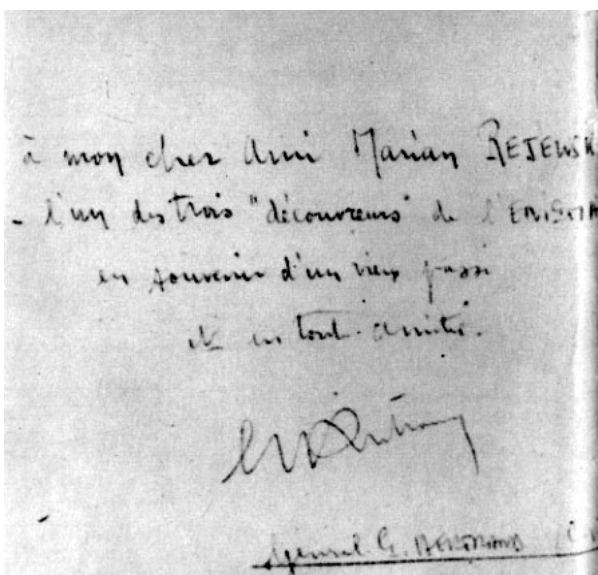 à mon cher Ami Marian REJEWSK
- l'un des trois "découvreurs" de l'ENIGMA
en souvenir d'un vieux passé
et en toute amitié.
Général G. BERTRAND